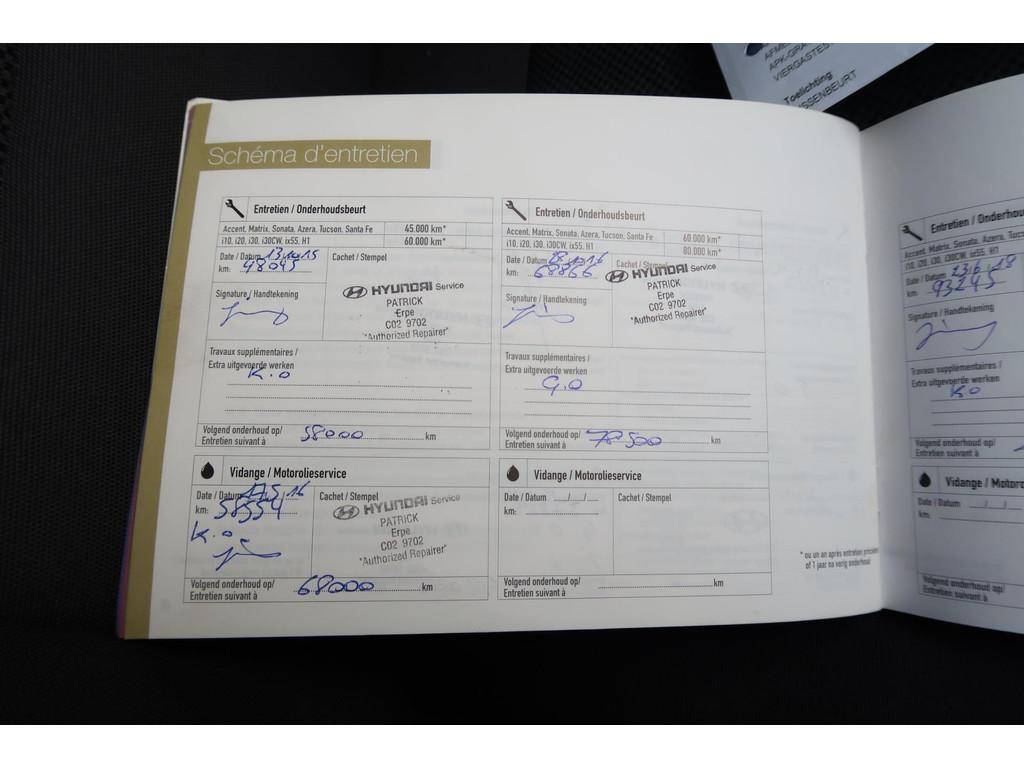 AFME
APK-GRA
VIERGASTES
Toelichting
SSENBEURT
Schéma d'entretien
Entretien / Onderhoudsbeurt
Accent, Matrix, Sonata, Azera, Tucson, Santa Fe 45.000 km*
i10, i20, i30, i30CW, ix55, H1 60.000 km*
Date / Datum 13.10.15
km: 48045
Cachet / Stempel
HYUNDAI Service
PATRICK
Erpe
C02 9702
"Authorized Repairer"
Signature / Handtekening
Travaux supplémentaires /
Extra uitgevoerde werken
K.O
Volgend onderhoud op/
Entretien suivant à 58000 km
Vidange / Motorolieservice
Date / Datum 17.5.16
km: 58554
K.O.
Cachet / Stempel
HYUNDAI Service
PATRICK
Erpe
C02 9702
"Authorized Repairer"
Volgend onderhoud op/
Entretien suivant à 68000 km
Entretien / Onderhoudsbeurt
Accent, Matrix, Sonata, Azera, Tucson, Santa Fe 60.000 km*
i10, i20, i30, i30CW, ix55, H1 80.000 km*
Date / Datum
km: 68866
Cachet / Stempel
HYUNDAI Service
PATRICK
Erpe
C02 9702
"Authorized Repairer"
Signature / Handtekening
Travaux supplémentaires /
Extra uitgevoerde werken
G.O
Volgend onderhoud op/
Entretien suivant à 78500 km
Vidange / Motorolieservice
Date / Datum / /
km:
Cachet / Stempel
Volgend onderhoud op/
Entretien suivant à km
* ou un an après entretien précéden
of 1 jaar na vorig onderhoud
Entretien / Onderhou
Accent, Matrix, Sonata, Azera, Tuc
i10, i20, i30, i30CW, ix55, H1
Date / Datum
km: 93245
Signature / Handtekening
Travaux supplémentaires /
Extra uitgevoerde werken
K.O
Volgend onderhoud op/
Entretien suivant à
Vidange / Motoro
Date / Datum
km:
Volgend onderhoud op/
Entretien suivant à